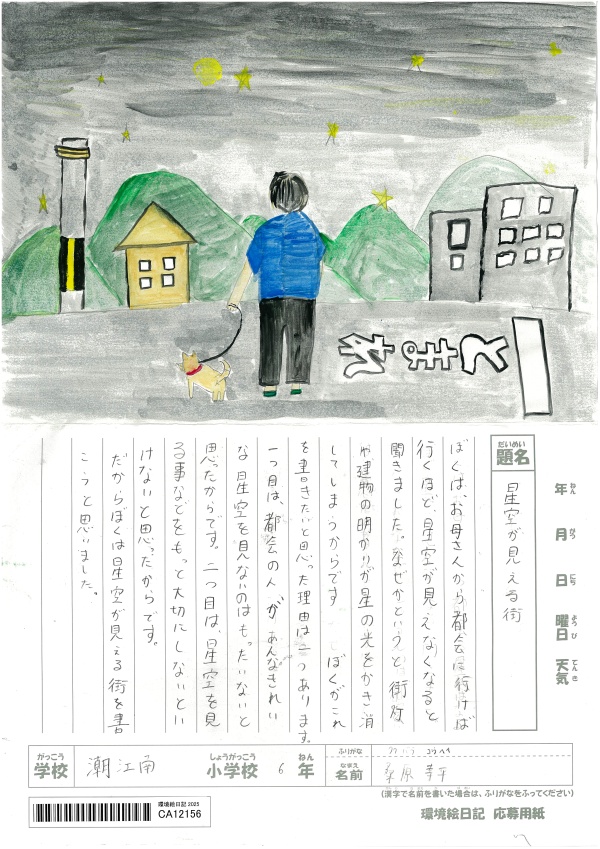 とまれ
だいめい
題名
星空が見える街
年 ねん
月 がつ
日 にち
曜日 ようび
天気 てんき
ぼくは、お母さんから、都会に行けば
行くほど、星空が見えなくなると
聞きました。なぜかというと、街灯
や建物の明かりが星の光をかき消
してしまうからです ぼくがこれ
を書きたいと思った理由は二つあります。
一つ目は、都会の人が、あんなきれい
な星空を見ないのはもったいないと
思ったからです。二つ目は、星空を見
る事などをもっと大切にしないとい
けないと思ったからです。
だからぼくは星空が見える街を書
こうと思いました。
がっこう
学校
潮江南
しょうがっこう
小学校
6
ねん
年
ふりがな
なまえ
名前
(漢字で名前を書いた場合は、ふりがなをふってください)
環境絵日記 2025
CA12156
環境絵日記 応募用紙